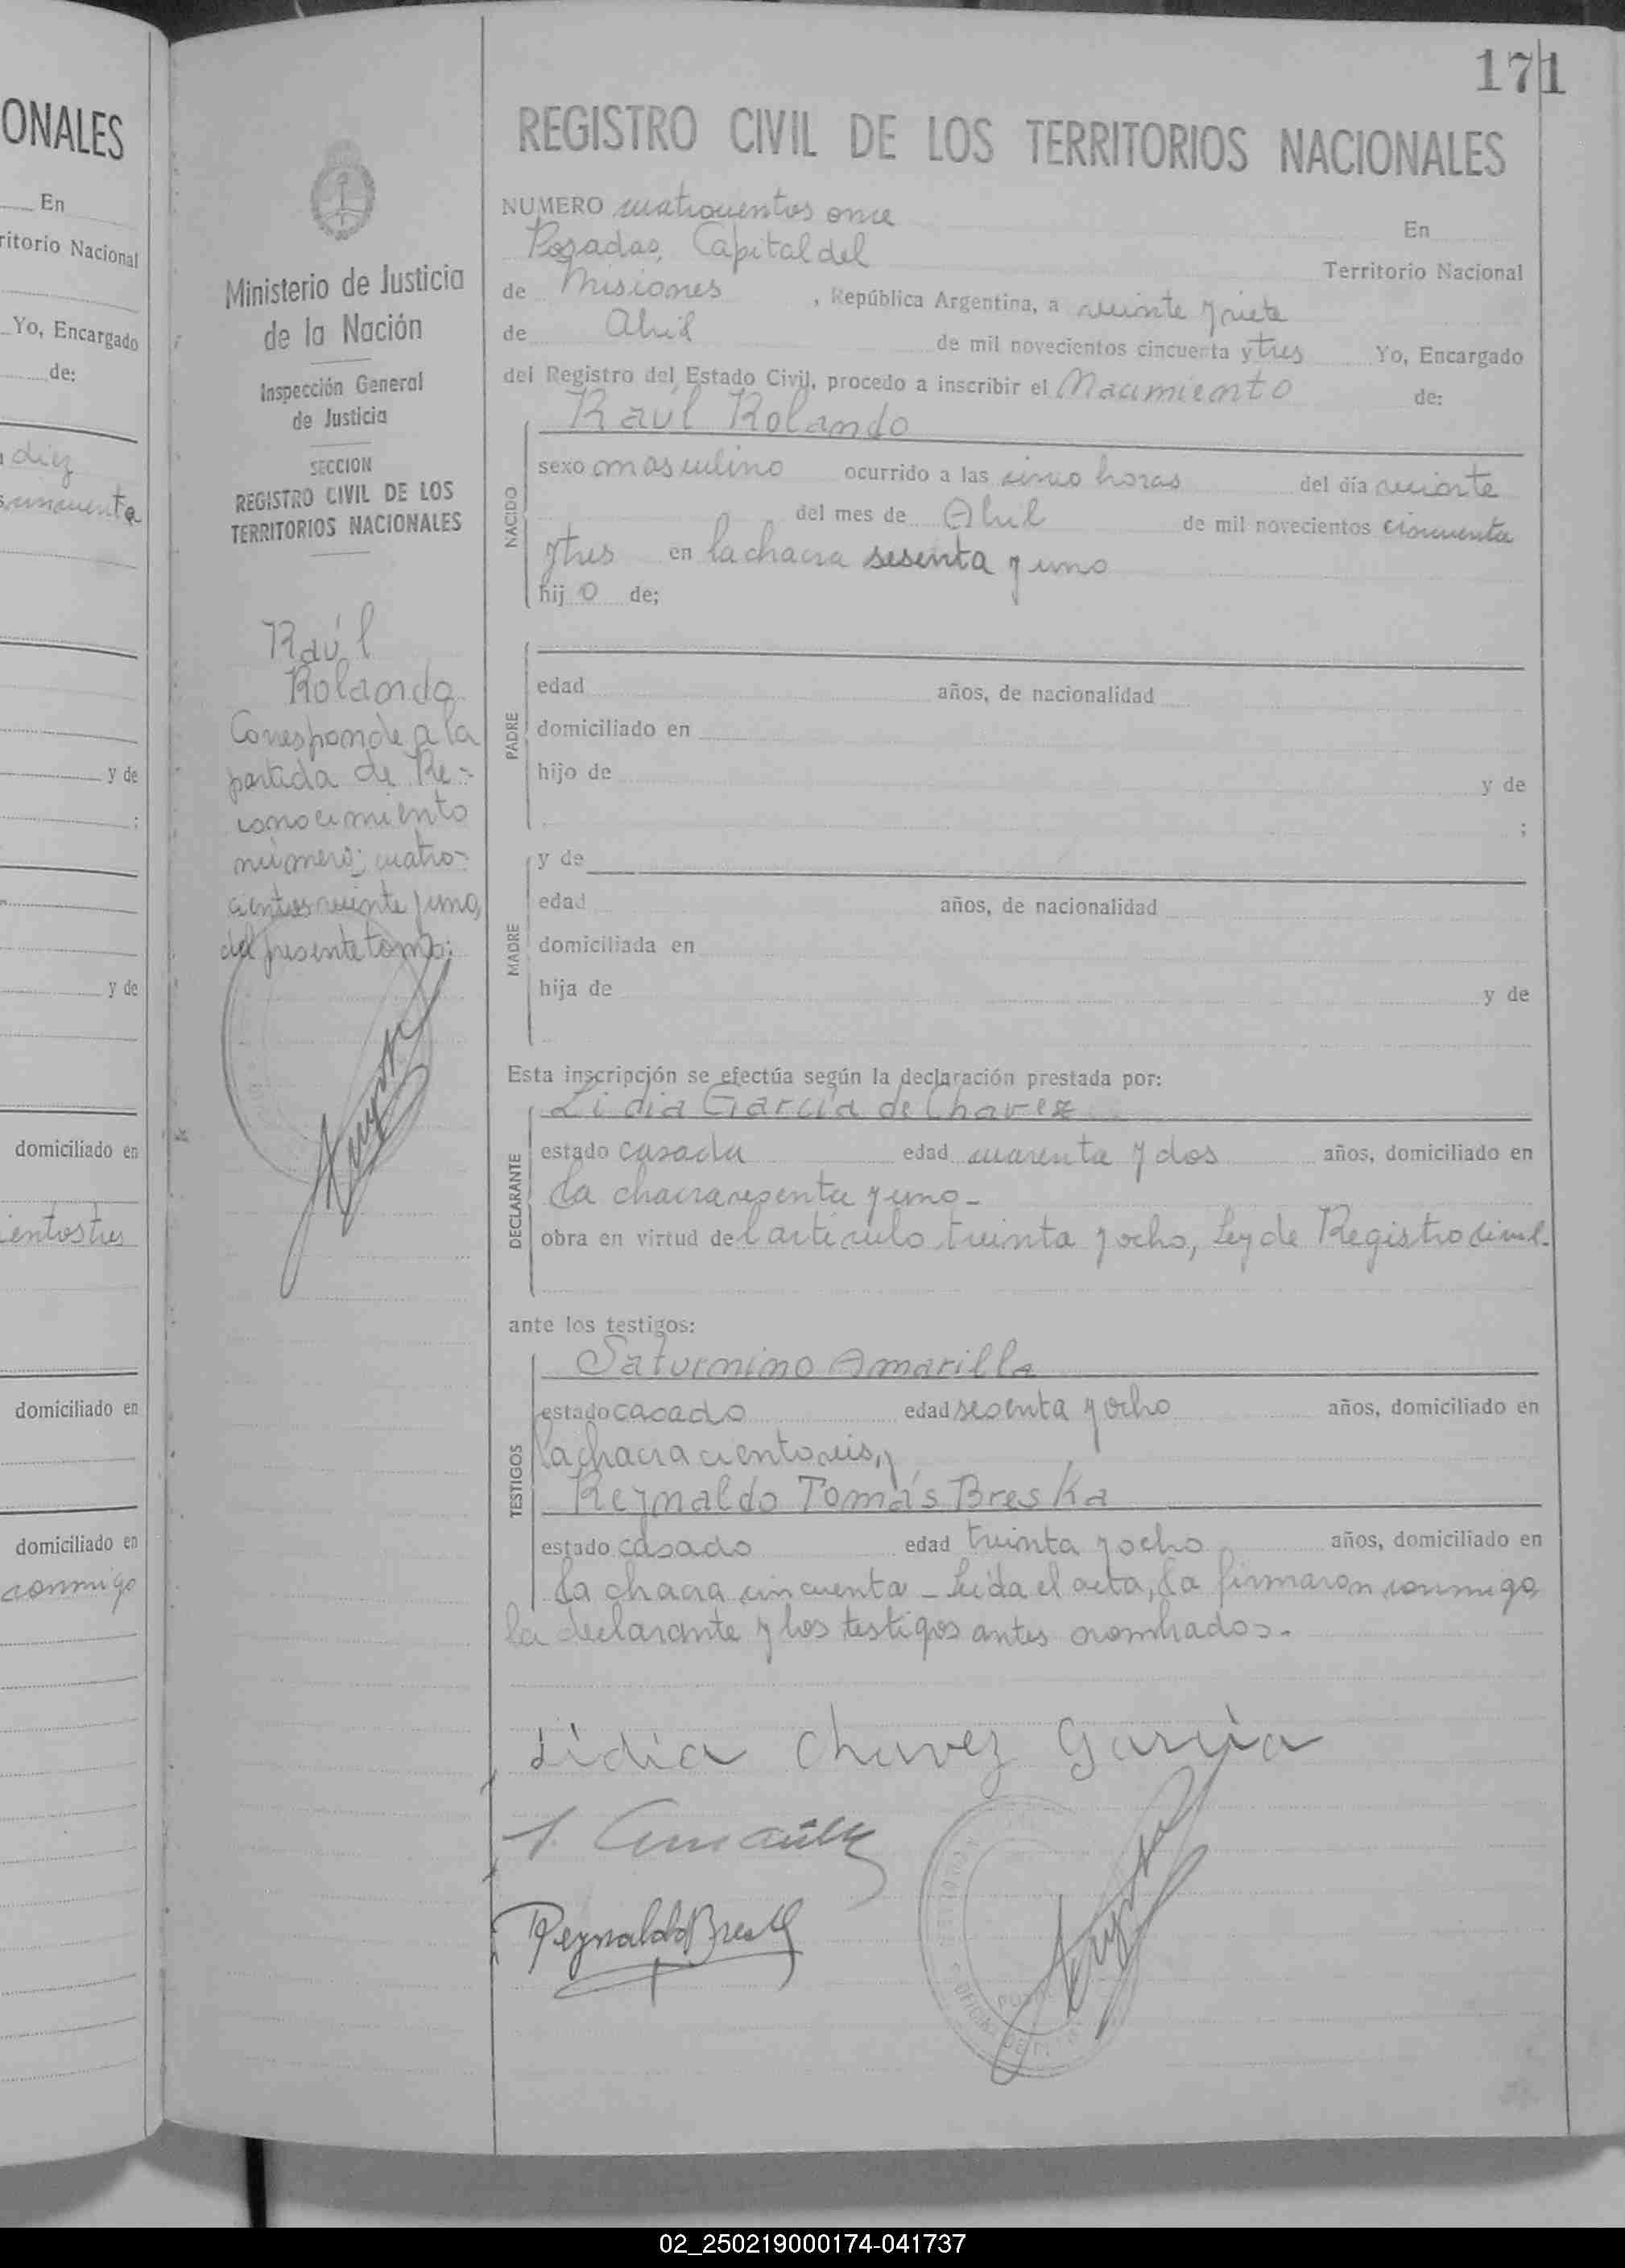 171
ONALES
En
ritorio Nacional
Yo, Encargado
de:
diez
cincuenta
y de
:
y de
domiciliado en
ientos tres
domiciliado en
domiciliado en
conmigo
Ministerio de Justicia
de la Nación
Inspección General
de Justicia
SECCION
REGISTRO CIVIL DE LOS
TERRITORIOS NACIONALES
Raúl
Rolando
Corresponde a la
partida de Re-
conocimiento
número; cuatro-
cientos veinte y uno,
del presente tomo:
REGISTRO CIVIL DE LOS TERRITORIOS NACIONALES
NUMERO cuatrocientos once En
Posadas, Capital del Territorio Nacional
de Misiones, República Argentina, a veinte y siete
de Abril de mil novecientos cincuenta y tres Yo, Encargado
del Registro del Estado Civil, procedo a inscribir el Nacimiento de:
Raúl Rolando
NACIDO
sexo masculino ocurrido a las cinco horas del día veinte
del mes de Abril de mil novecientos cincuenta
y tres en la chacra sesenta y uno
hij o de;
PADRE
edad años, de nacionalidad
domiciliado en
hijo de y de
;
MADRE
y de
edad años, de nacionalidad
domiciliada en
hija de y de
Esta inscripción se efectúa según la declaración prestada por:
Lidia García de Chavez
DECLARANTE
estado casada edad cuarenta y dos años, domiciliado en
la chacra sesenta y uno-
obra en virtud del artículo treinta y ocho, Ley de Registro Civil.
ante los testigos:
Saturnino Amarilla
TESTIGOS
estado casado edad sesenta y ocho años, domiciliado en
la chacra ciento seis, y
Reynaldo Tomás Breska
estado casado edad treinta y ocho años, domiciliado en
la chacra cincuenta - Leída el acta, la firmaron conmigo,
la declarante y los testigos antes nombrados.
Lidia Chavez Garcia
Reynaldo Breska
02_250219000174-041737